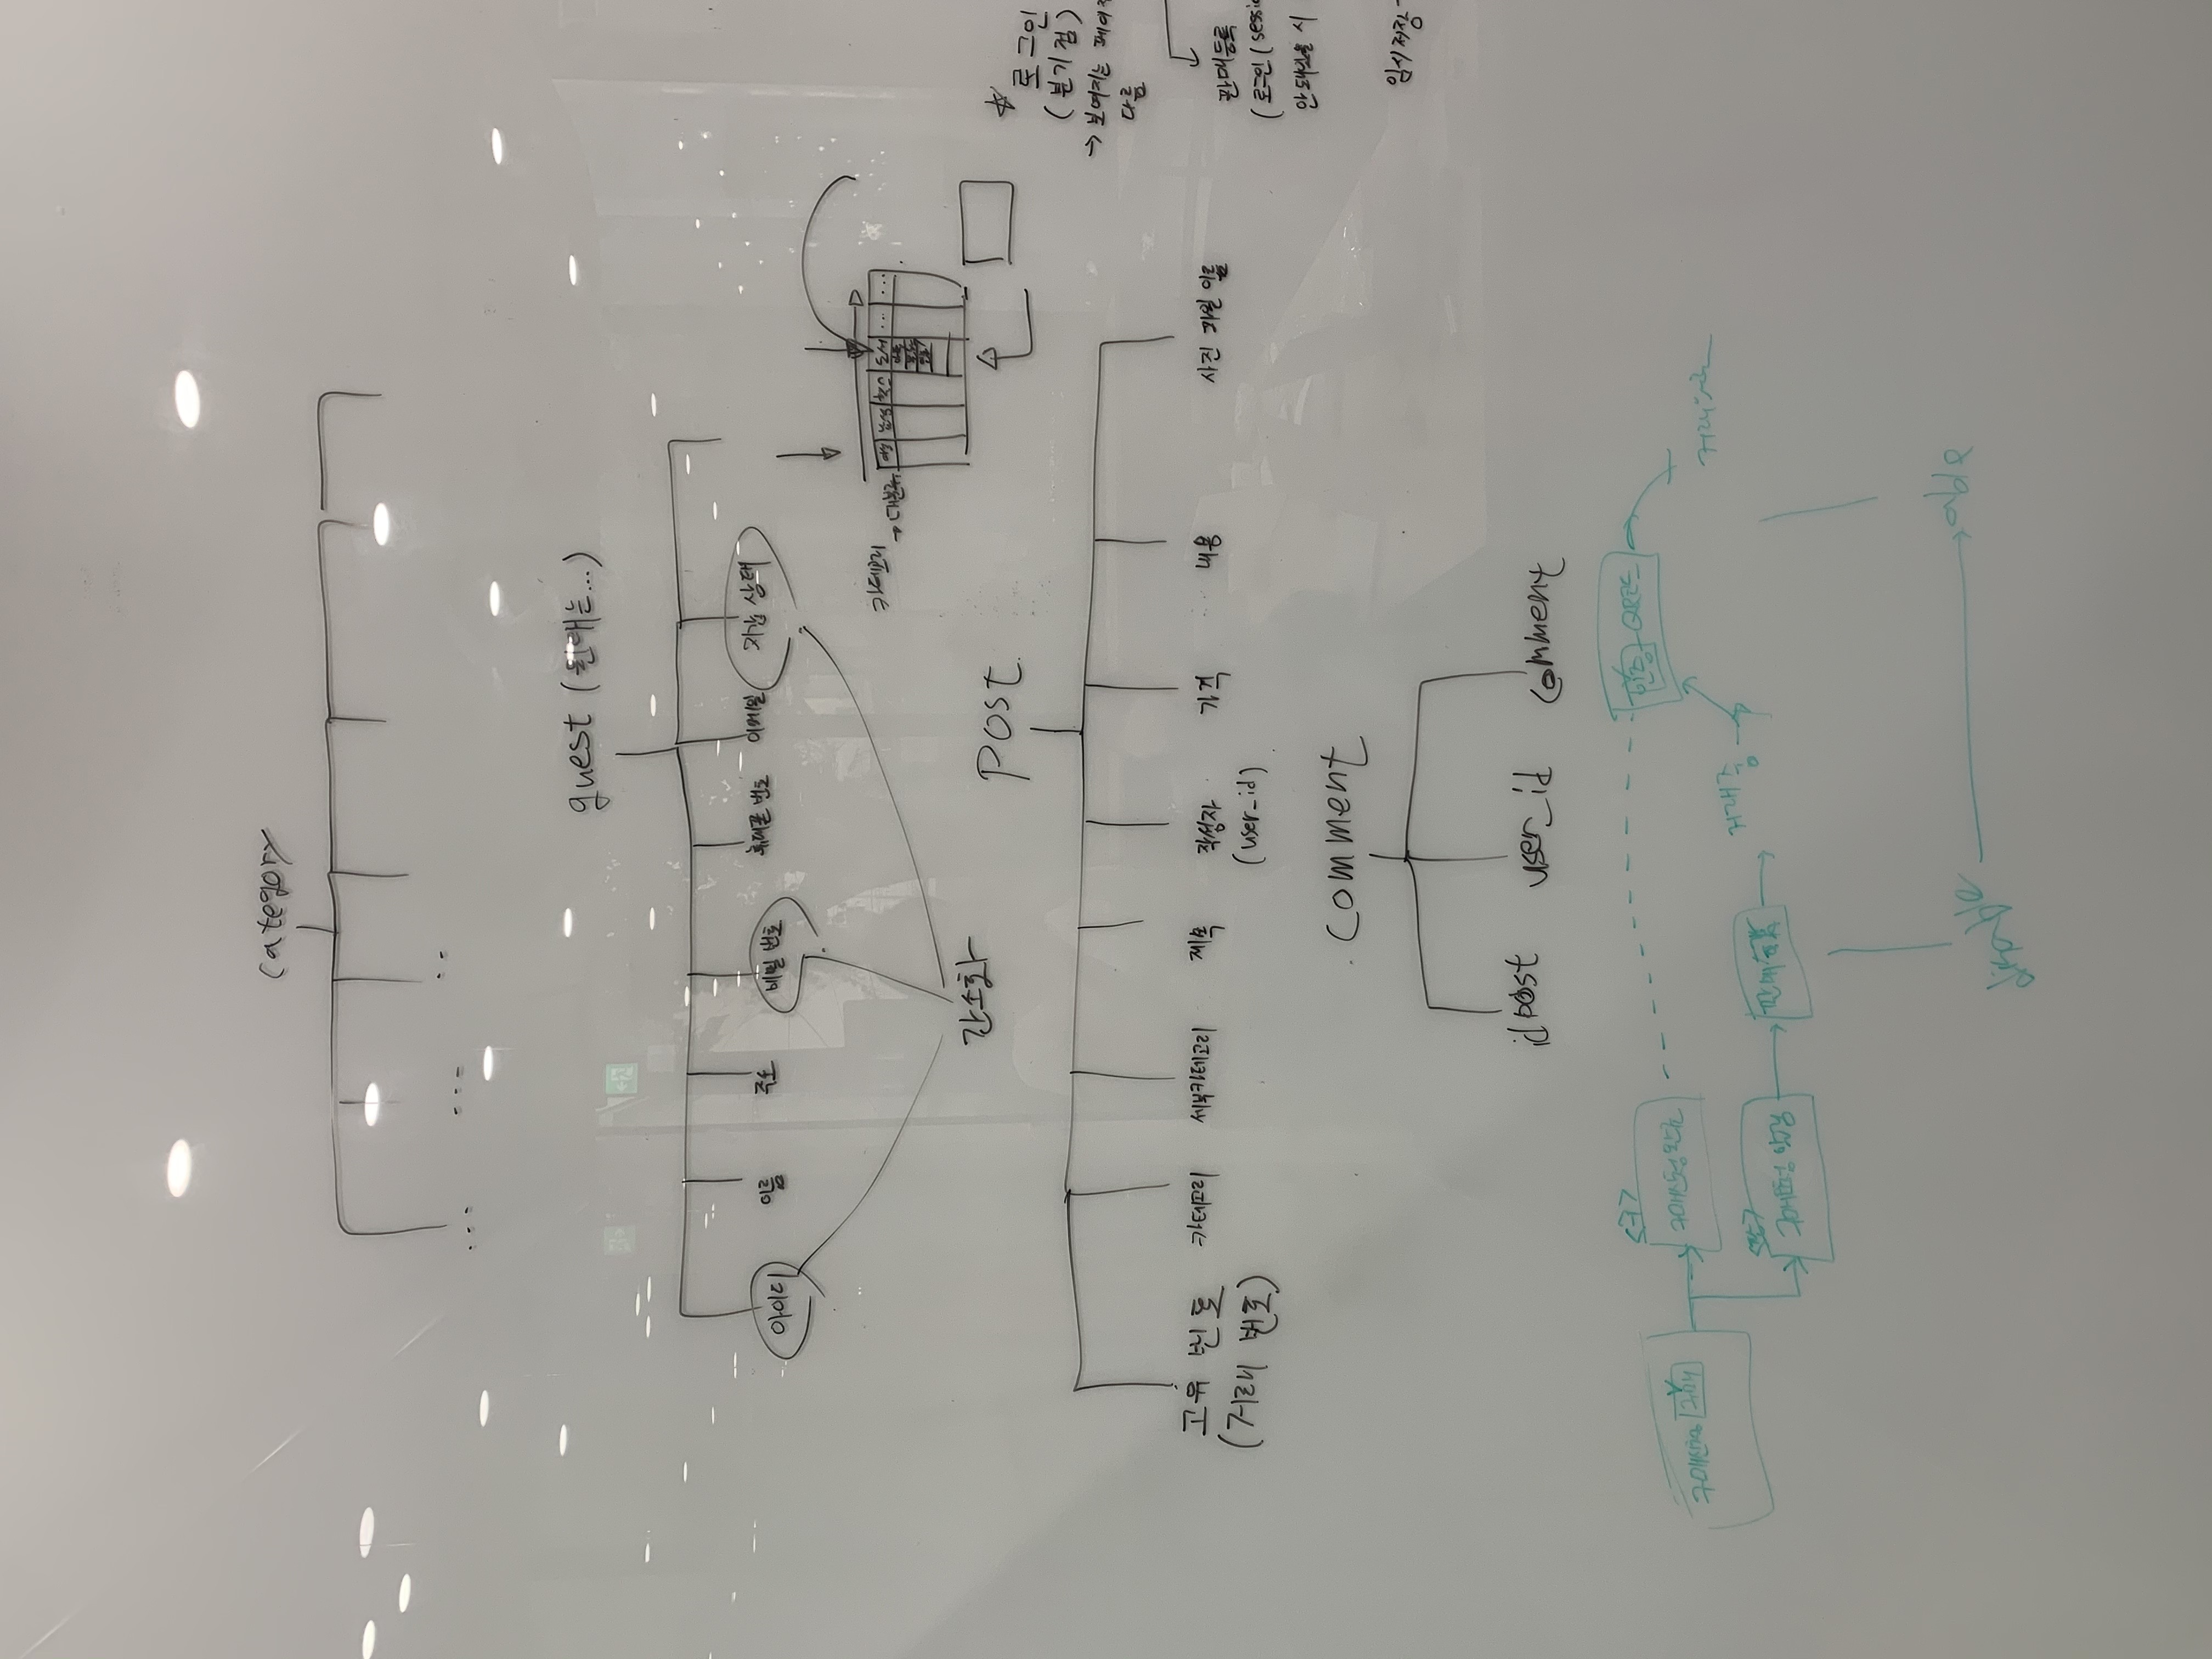 category
...
...
..
guest (원래는...)
아이디
이름
주소
비밀 번호
휴대폰 번호
이메일
지갑 상태
간소화
카테고리
→ 대분류
도서
...
...
post
고유 번호
(거래 번호)
카테고리
세부카테고리
제목
작성자
(user_id)
가격
내용
사진 파일 이름
☆
로그인
(분기점)
→ 보여지는 페이지
다름
판매등록
(로그인 (sessio
안돼있을 시
임시저장
comment
idpost
user_id
comment
구매신청 구매
<구>
구매신청완료
<판>
구매요청 알림
판매
거래중
인증 QR코드
거래완료
disable
able